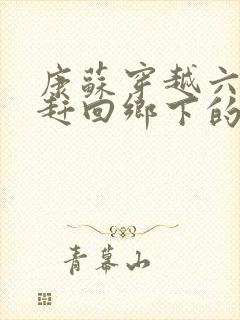 康蘇穿越六
赶回鄉下的
青幕山